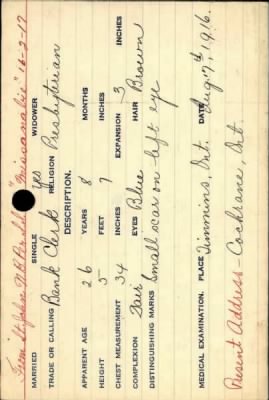 From St. John N.B. Per S.S. "Missanabie" 16-2-17
MARRIED SINGLE yes WIDOWER
TRADE OR CALLING Bank Clerk RELIGION Presbyterian
DESCRIPTION.
APPARENT AGE 26 YEARS 8 MONTHS
HEIGHT 5 FEET 7 INCHES
CHEST MEASUREMENT 34 INCHES EXPANSION 3 INCHES
COMPLEXION Fair EYES Blue HAIR Brown
DISTINGUISHING MARKS Small scar on left eye
MEDICAL EXAMINATION. PLACE Timmins, Ont. DATE Aug. 7th, 1916.
Present Address - Cochrane, Ont.